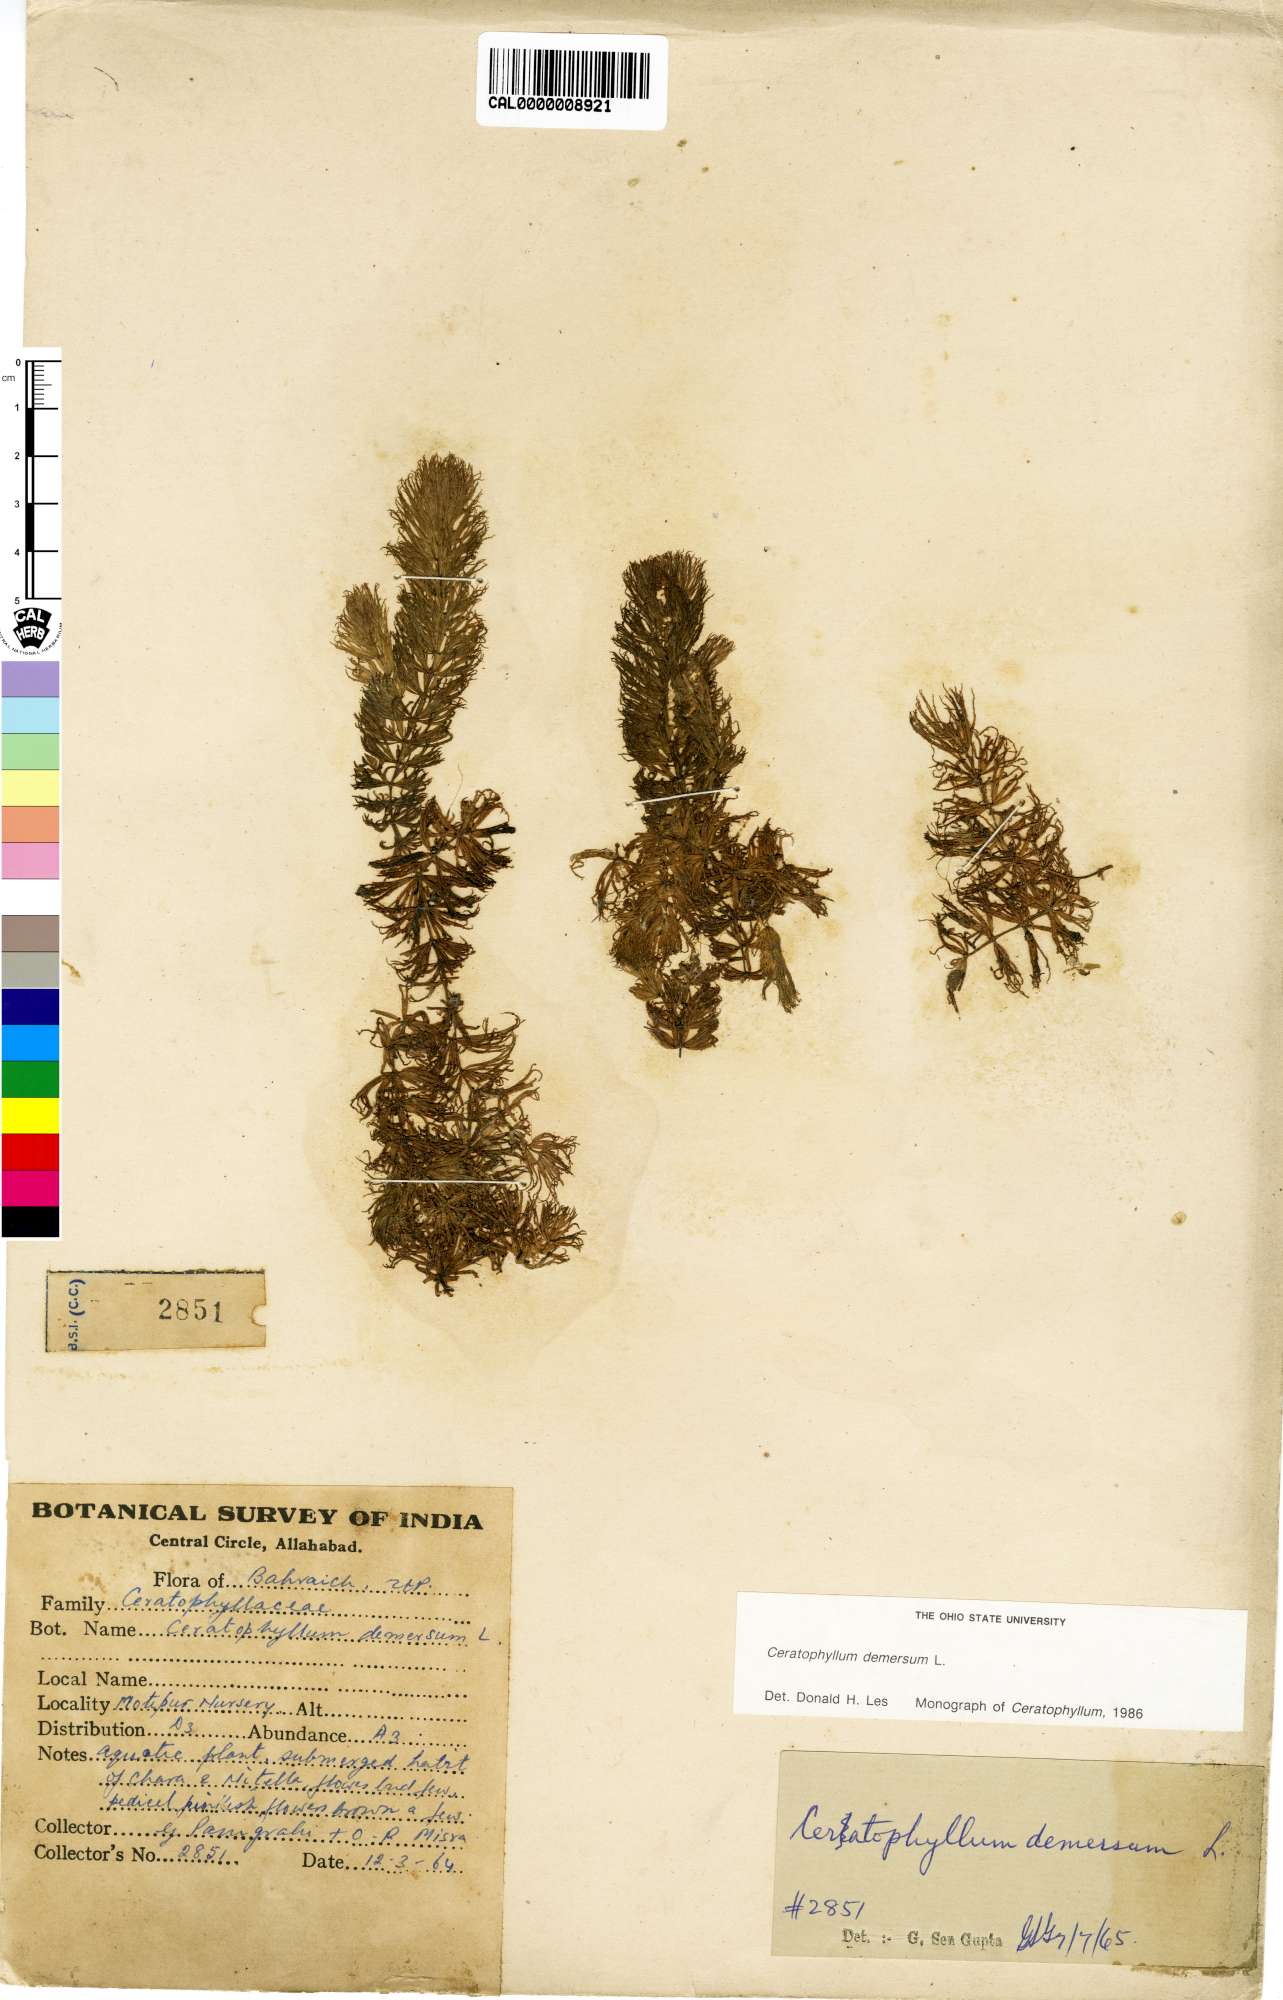 CAL0000008921
0
cm
1
2
3
4
5
CAL
HERB
B.S.I. (C.C.)
2851
BOTANICAL SURVEY OF INDIA
Central Circle, Allahabad.
Flora of Bahraich, U.P.
Family Ceratophyllaceae
Bot. Name Ceratophyllum demersum L.
Local Name
Locality Motipur Nursery Alt.
Distribution D3 Abundance A3
Notes aquatic plant, submerged habit
of Chara & Nitella, flowers bud few,
pedicel pinkish flowers brown a few.
Collector G Panigrahi + O. P. Misra
Collector's No. 2851 Date 12-3-64
THE OHIO STATE UNIVERSITY
Ceratophyllum demersum L.
Det. Donald H. Les Monograph of Ceratophyllum, 1986
Ceratophyllum demersum L.
#2851
Det. :- G. Sen Gupta 7/7/65.